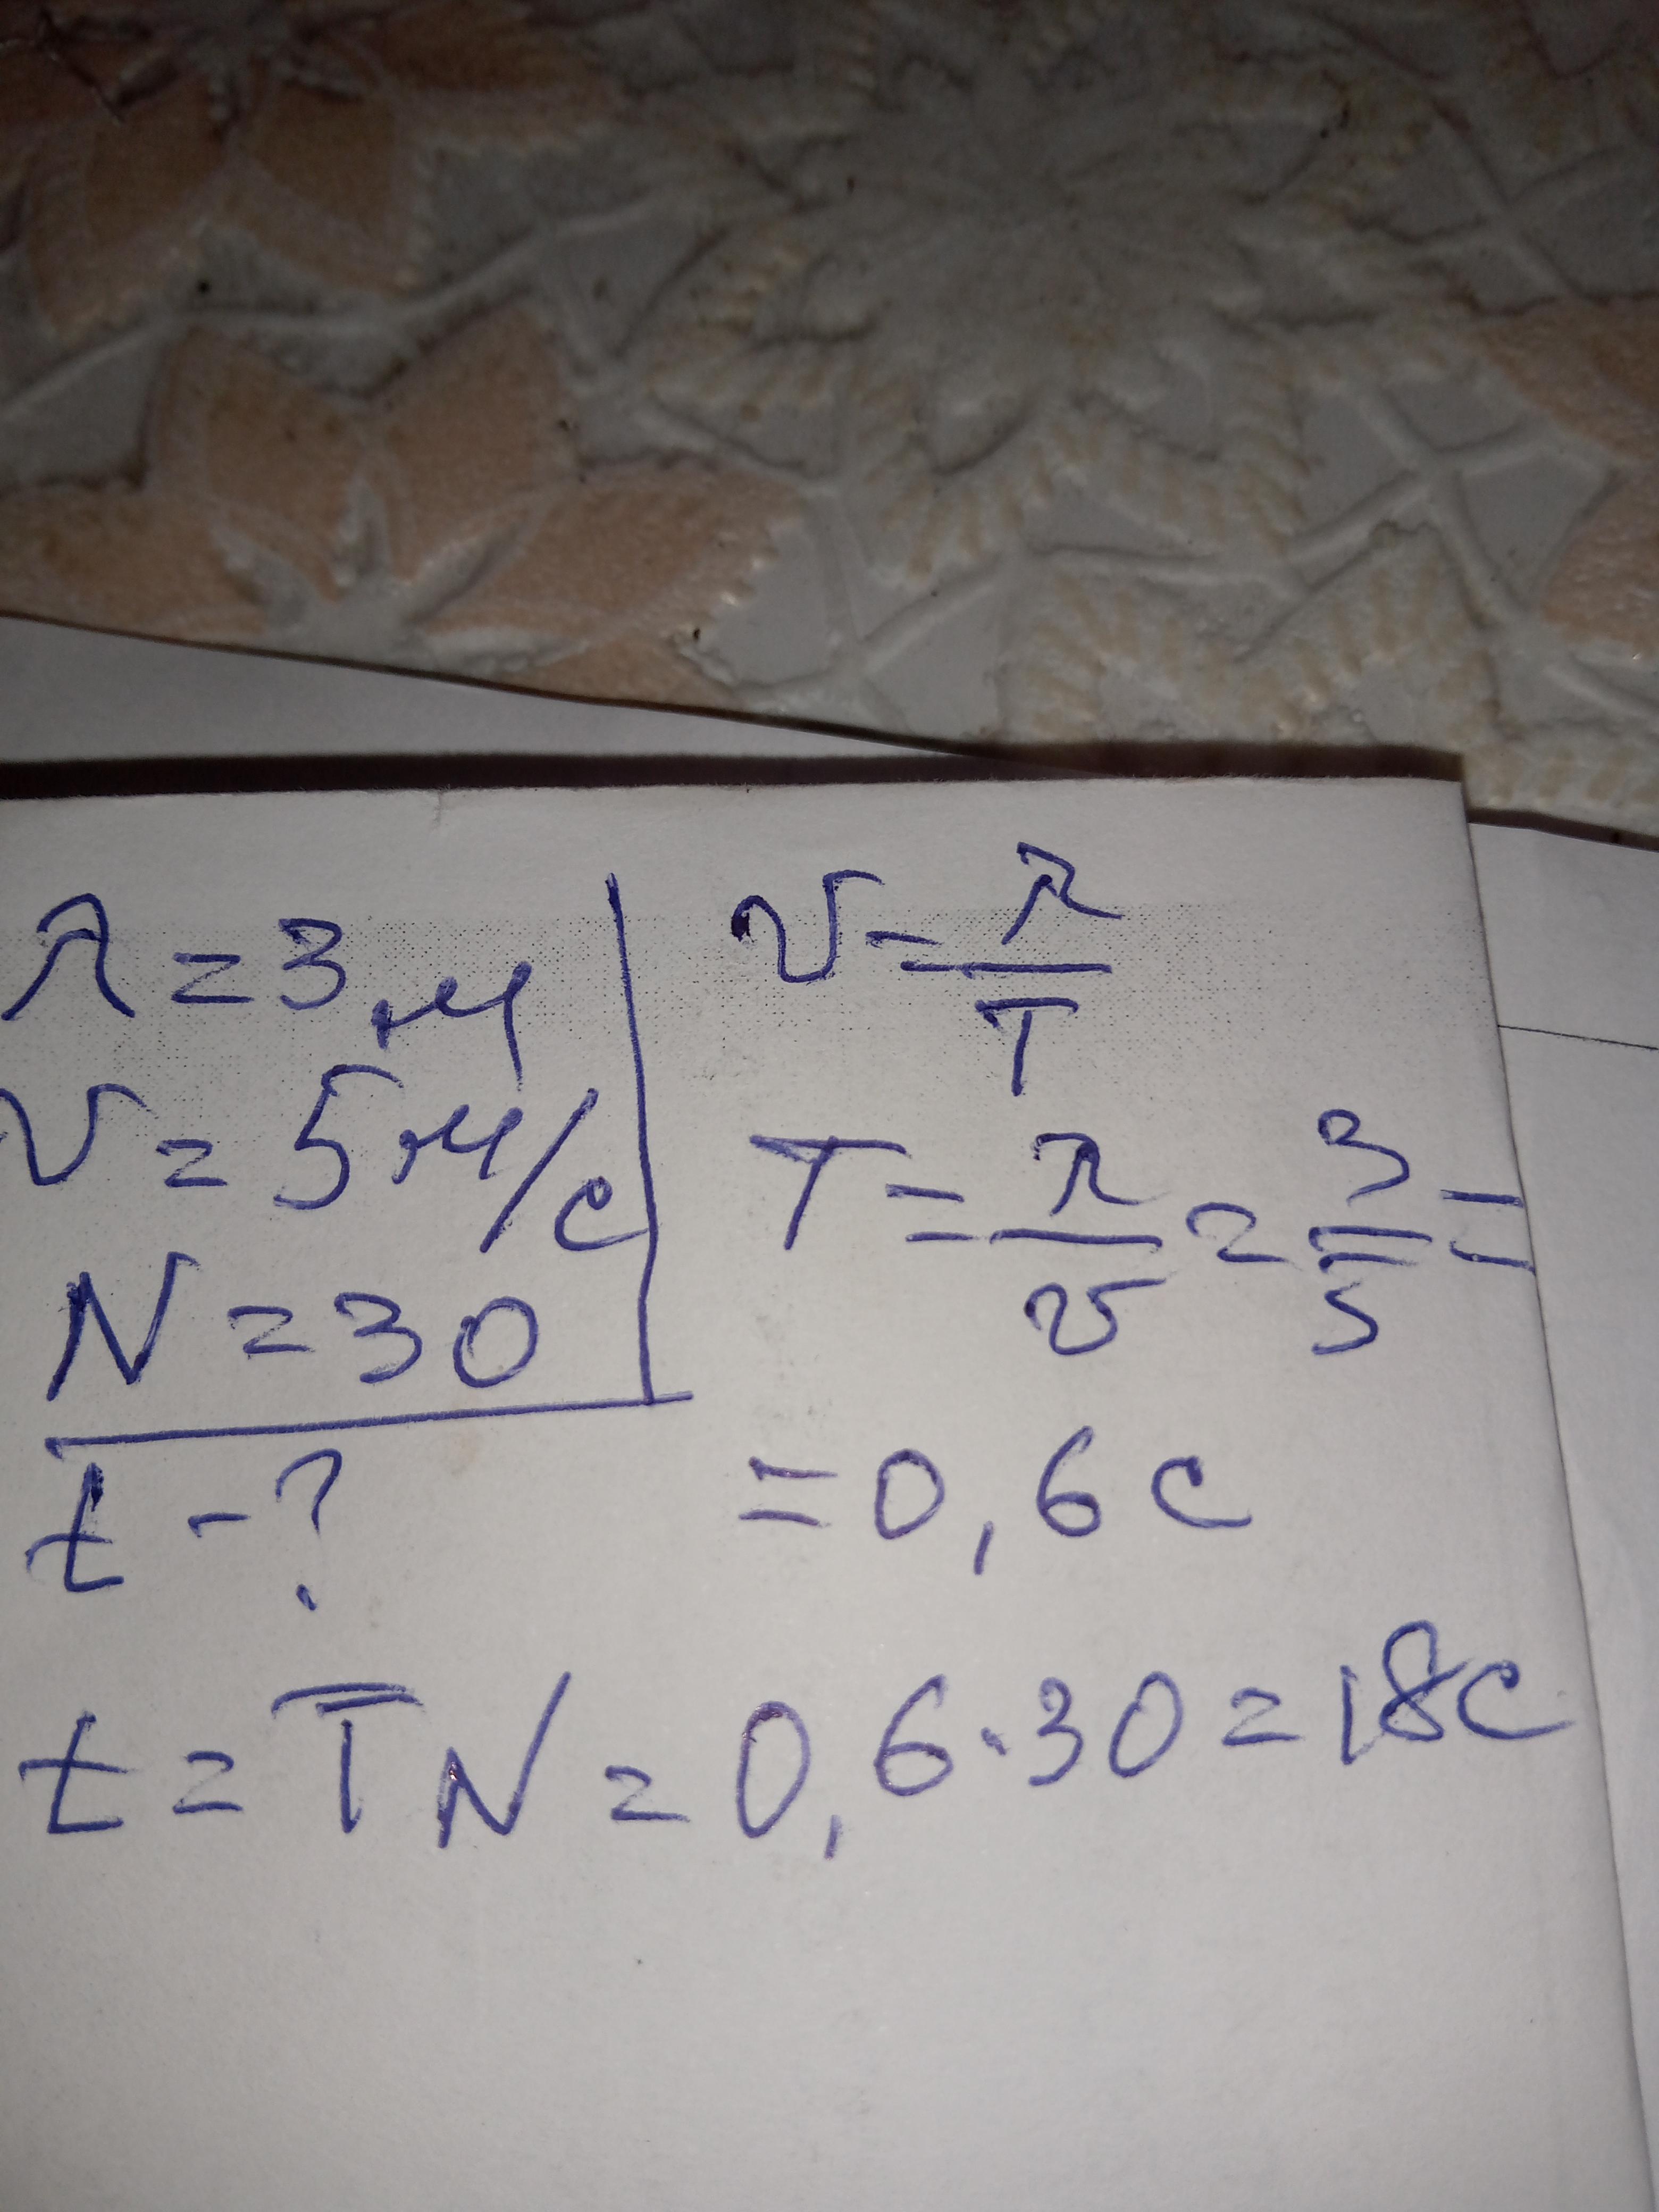 λ = 3 м
v = 5 м/с
N = 30
t - ?
v = λ/T
T = λ/v = 3/5 =
= 0,6 с
t = TN = 0,6 · 30 = 18 с